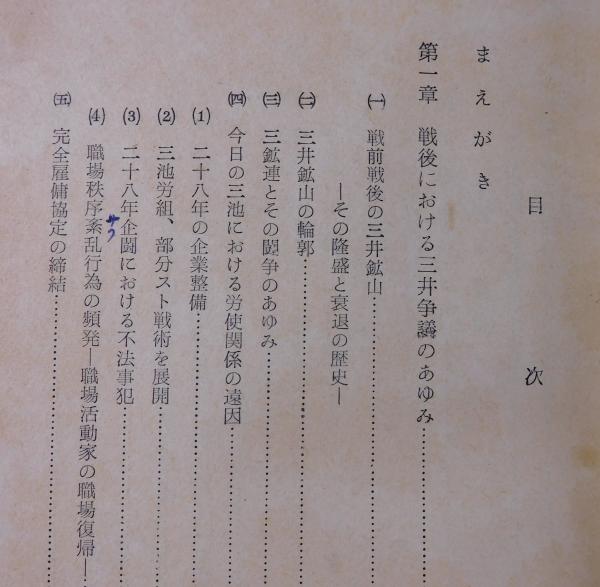 目次
まえがき
第一章 戦後における三井争議のあゆみ
㈠ 戦前戦後の三井鉱山
―その隆盛と衰退の歴史―
㈡ 三井鉱山の輪郭
㈢ 三鉱連とその闘争のあゆみ
㈣ 今日の三池における労使関係の遠因
(1) 二十八年の企業整備
(2) 三池労組、部分スト戦術を展開
(3) 二十八年企闘における不法事犯
(4) 職場秩序紊乱行為の頻発―職場活動家の職場復帰―
㈤ 完全雇傭協定の締結